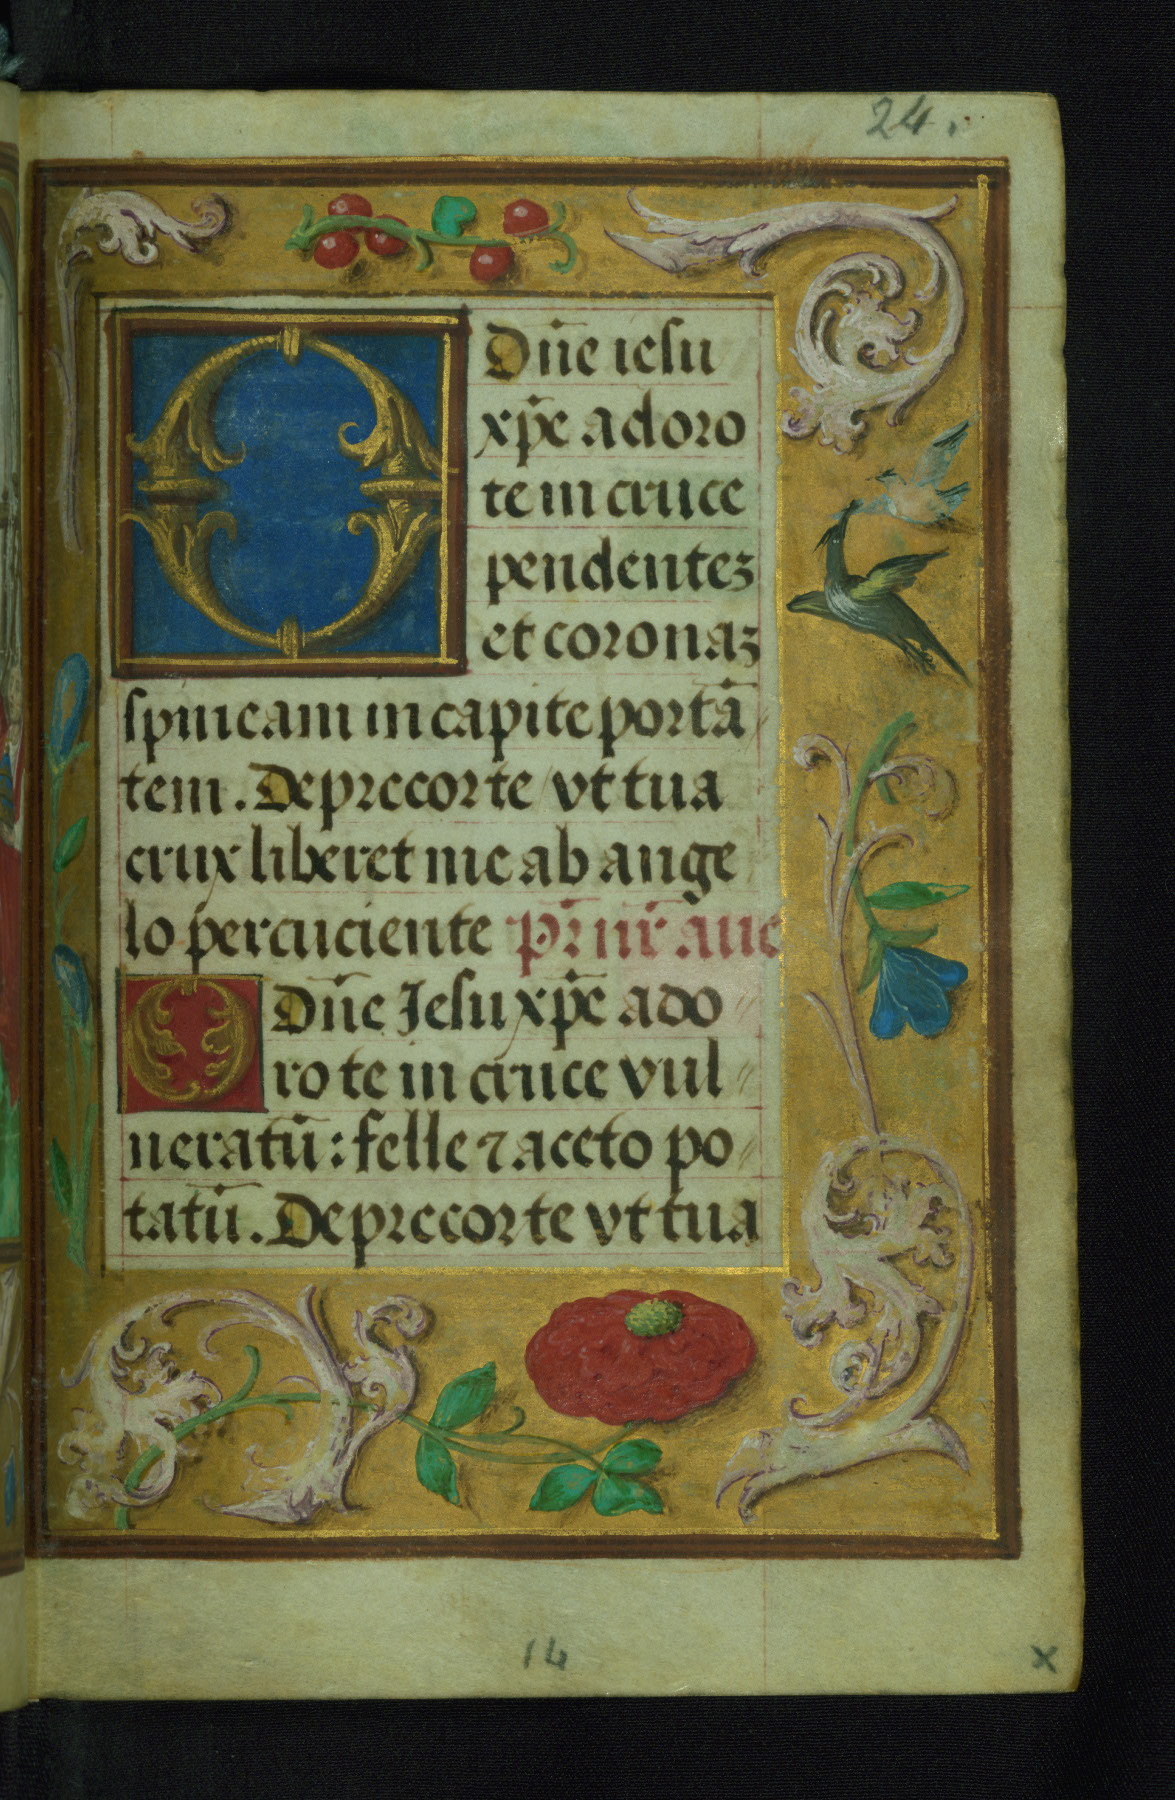 24.
O Dn̄e iesu
xp̄e adoro
te in cruce
pendenteꝫ
et coronaꝫ
spineam in capite portā
tem. Deprecor te / vt tua
crux liberet me ab ange
lo percuciente Pr̄ nr̄ aue
O Dn̄e Jesu xp̄e ado //
ro te in cruce vul //
neratū: felle ⁊ aceto po //
tatū. Deprecor te vt tua
14
x